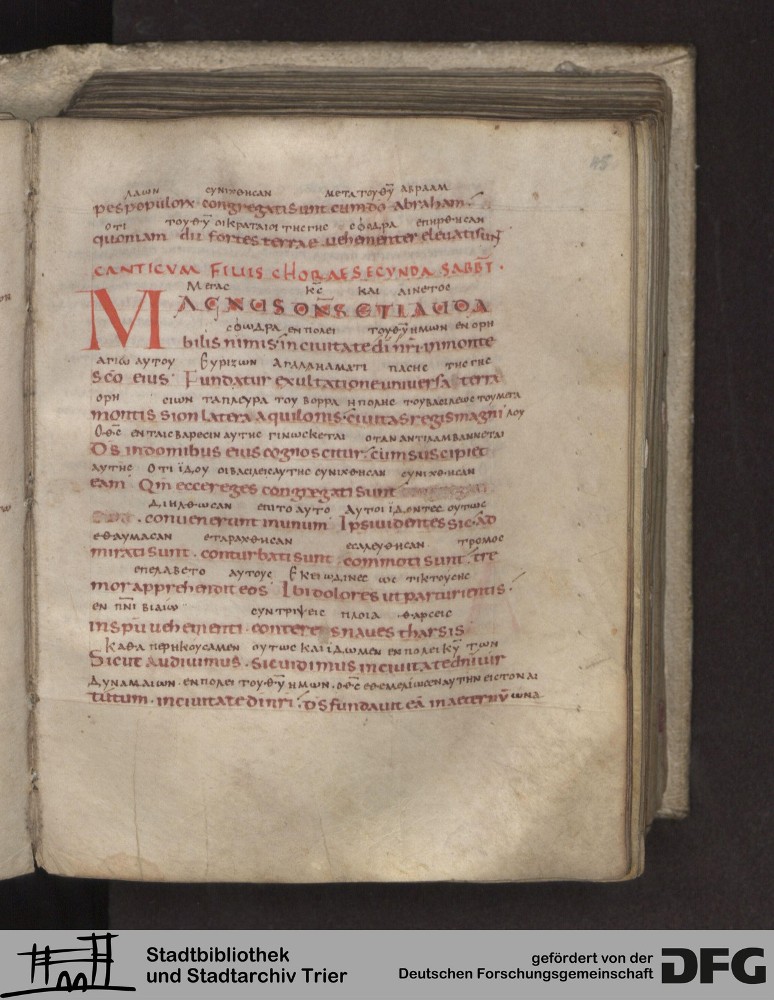 45
ΛΑωΝ CΥΝΙΧΘΗCΑΝ ΜΕΤΑ ΤΟΥ ΘΥ ΑΒΡΑΑΜ
pes populorum congregati sunt cum do abraham.
ΟΤΙ ΤΟΥ ΘΥ ΟΙ ΚΡΑΤΑΙΟΙ ΤΗC ΓΗC CΦΟΔΡΑ ΕΠΗΡΘΗCΑΝ
quoniam dii fortes terrae uehementer eleuati sunt
CANTICVM FILIIS CHORAE SECVNDA SABBTI.
ΜΕΓΑC ΚC ΚΑΙ ΑΙΝΕΤΟC
MAGNUS DNS ET LAUDA
CΦΩΔΡΑ ΕΝ ΠΟΛΕΙ ΤΟΥ ΘΥ ΗΜωΝ ΕΝ ΟΡΗ
bilis nimis in ciuitate di nri in monte
ΑΓΙω ΑΥΤΟΥ ΕΥΡΙΖωΝ ΑΓΑΛΛΗΑΜΑΤΙ ΠΑCΗC ΤΗC ΓΗC
sco eius Fundatur exultatione uniuersa terra
ΟΡΗ CΙωΝ ΤΑ ΠΛΕΥΡΑ ΤΟΥ ΒΟΡΡΑ Η ΠΟΛΗC ΤΟΥ ΒΑCΙΛΕωC ΤΟΥ ΜΕΓΑ
montis sion latera aquilonis. ciuitas regis magni ΛΟΥ
Ο ΘC ΕΝ ΤΑΙC ΒΑΡΕCΙΝ ΑΥΤΗC ΓΙΝωCΚΕΤΑΙ ΟΤΑΝ ΑΝΤΙΛΑΜΒΑΝΝΕΤΑΙ
Ds in domibus eius cognoscitur. cum suscipiet
ΑΥΤΗC ΟΤΙ ΙΔΟΥ ΟΙ ΒΑCΙΛΕΙC ΑΥΤΗC CΥΝΙΧΘΗCΑΝ CΥΝΙΧΘΗCΑΝ
eam Qm ecce reges congregati sunt
ΔΙΗΛΘωCΑΝ ΕΠΙ ΤΟ ΑΥΤΟ ΑΥΤΟΙ ΙΔΟΝΤΕC ΟΥΤωC
conuenerunt in unum Ipsi uidentes sic ad
ΕΘΑΥΜΑCΑΝ ΕΤΑΡΑΧΘΗCΑΝ ΕCΑΛΕΥΘΗCΑΝ ΤΡΟΜΟC
mirati sunt. conturbati sunt commoti sunt. tre
ΕΠΕΛΑΒΕΤΟ ΑΥΤΟΥC ΕΚΕΙ ωΔΙΝΕC ωC ΤΙΚΤΟΥCΗC
mor apprehendit eos Ibi dolores ut parturientis.
ΕΝ ΠΝΙ ΒΙΑΙω CΥΝΤΡΙΨΕΙC ΠΛΟΙΑ ΘΑΡCΕΙC
in spu uehementi. conteres naues tharsis
ΚΑΘΑΠΕΡ ΗΚΟΥCΑΜΕΝ ΟΥΤωC ΚΑΙ ΙΔωΜΕΝ ΕΝ ΠΟΛΕΙ ΚΥ ΤωΝ
Sicut audiuimus. sic uidimus in ciuitate dni uir
ΔΥΝΑΜΑΙωΝ. ΕΝ ΠΟΛΕΙ ΤΟΥ ΘΥ ΗΜωΝ. Ο ΘC ΕΘΕΜΕΛΙωCΕΝ ΑΥΤΗΝ ΕΙC ΤΟΝ ΑΙ
tutum. in ciuitate di nri. DS fundauit ea in aeternu ωΝΑ
Stadtbibliothek
und Stadtarchiv Trier
gefördert von der
Deutschen Forschungsgemeinschaft
DFG